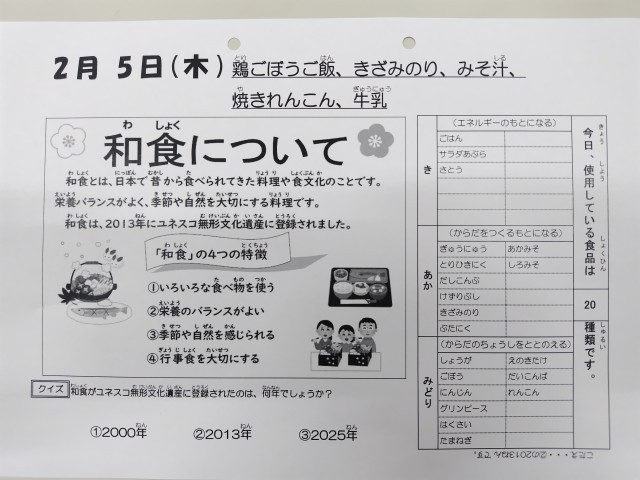 2月 5日(木) 鶏ごぼうご飯、きざみのり、みそ汁、
焼きれんこん、牛乳
和食について
和食とは、日本で昔から食べられてきた料理や食文化のことです。
栄養バランスがよく、季節や自然を大切にする料理です。
和食は、2013年にユネスコ無形文化遺産に登録されました。
「和食」の4つの特徴
①いろいろな食べ物を使う
②栄養のバランスがよい
③季節や自然を感じられる
④行事食を大切にする
クイズ 和食がユネスコ無形文化遺産に登録されたのは、何年でしょうか?
①2000年 ②2013年 ③2025年
き
(エネルギーのもとになる)
ごはん
サラダあぶら
さとう
あか
(からだをつくるもとになる)
ぎゅうにゅう あかみそ
とりひきにく しろみそ
だしこんぶ
けずりぶし
きざみのり
ぶたにく
みどり
(からだのちょうしをととのえる)
しょうが えのきだけ
ごぼう だいこんば
にんじん れんこん
グリンピース
はくさい
たまねぎ
今日、使用している食品は
20
種類です。
こたえ・・・②の2013ねんです。